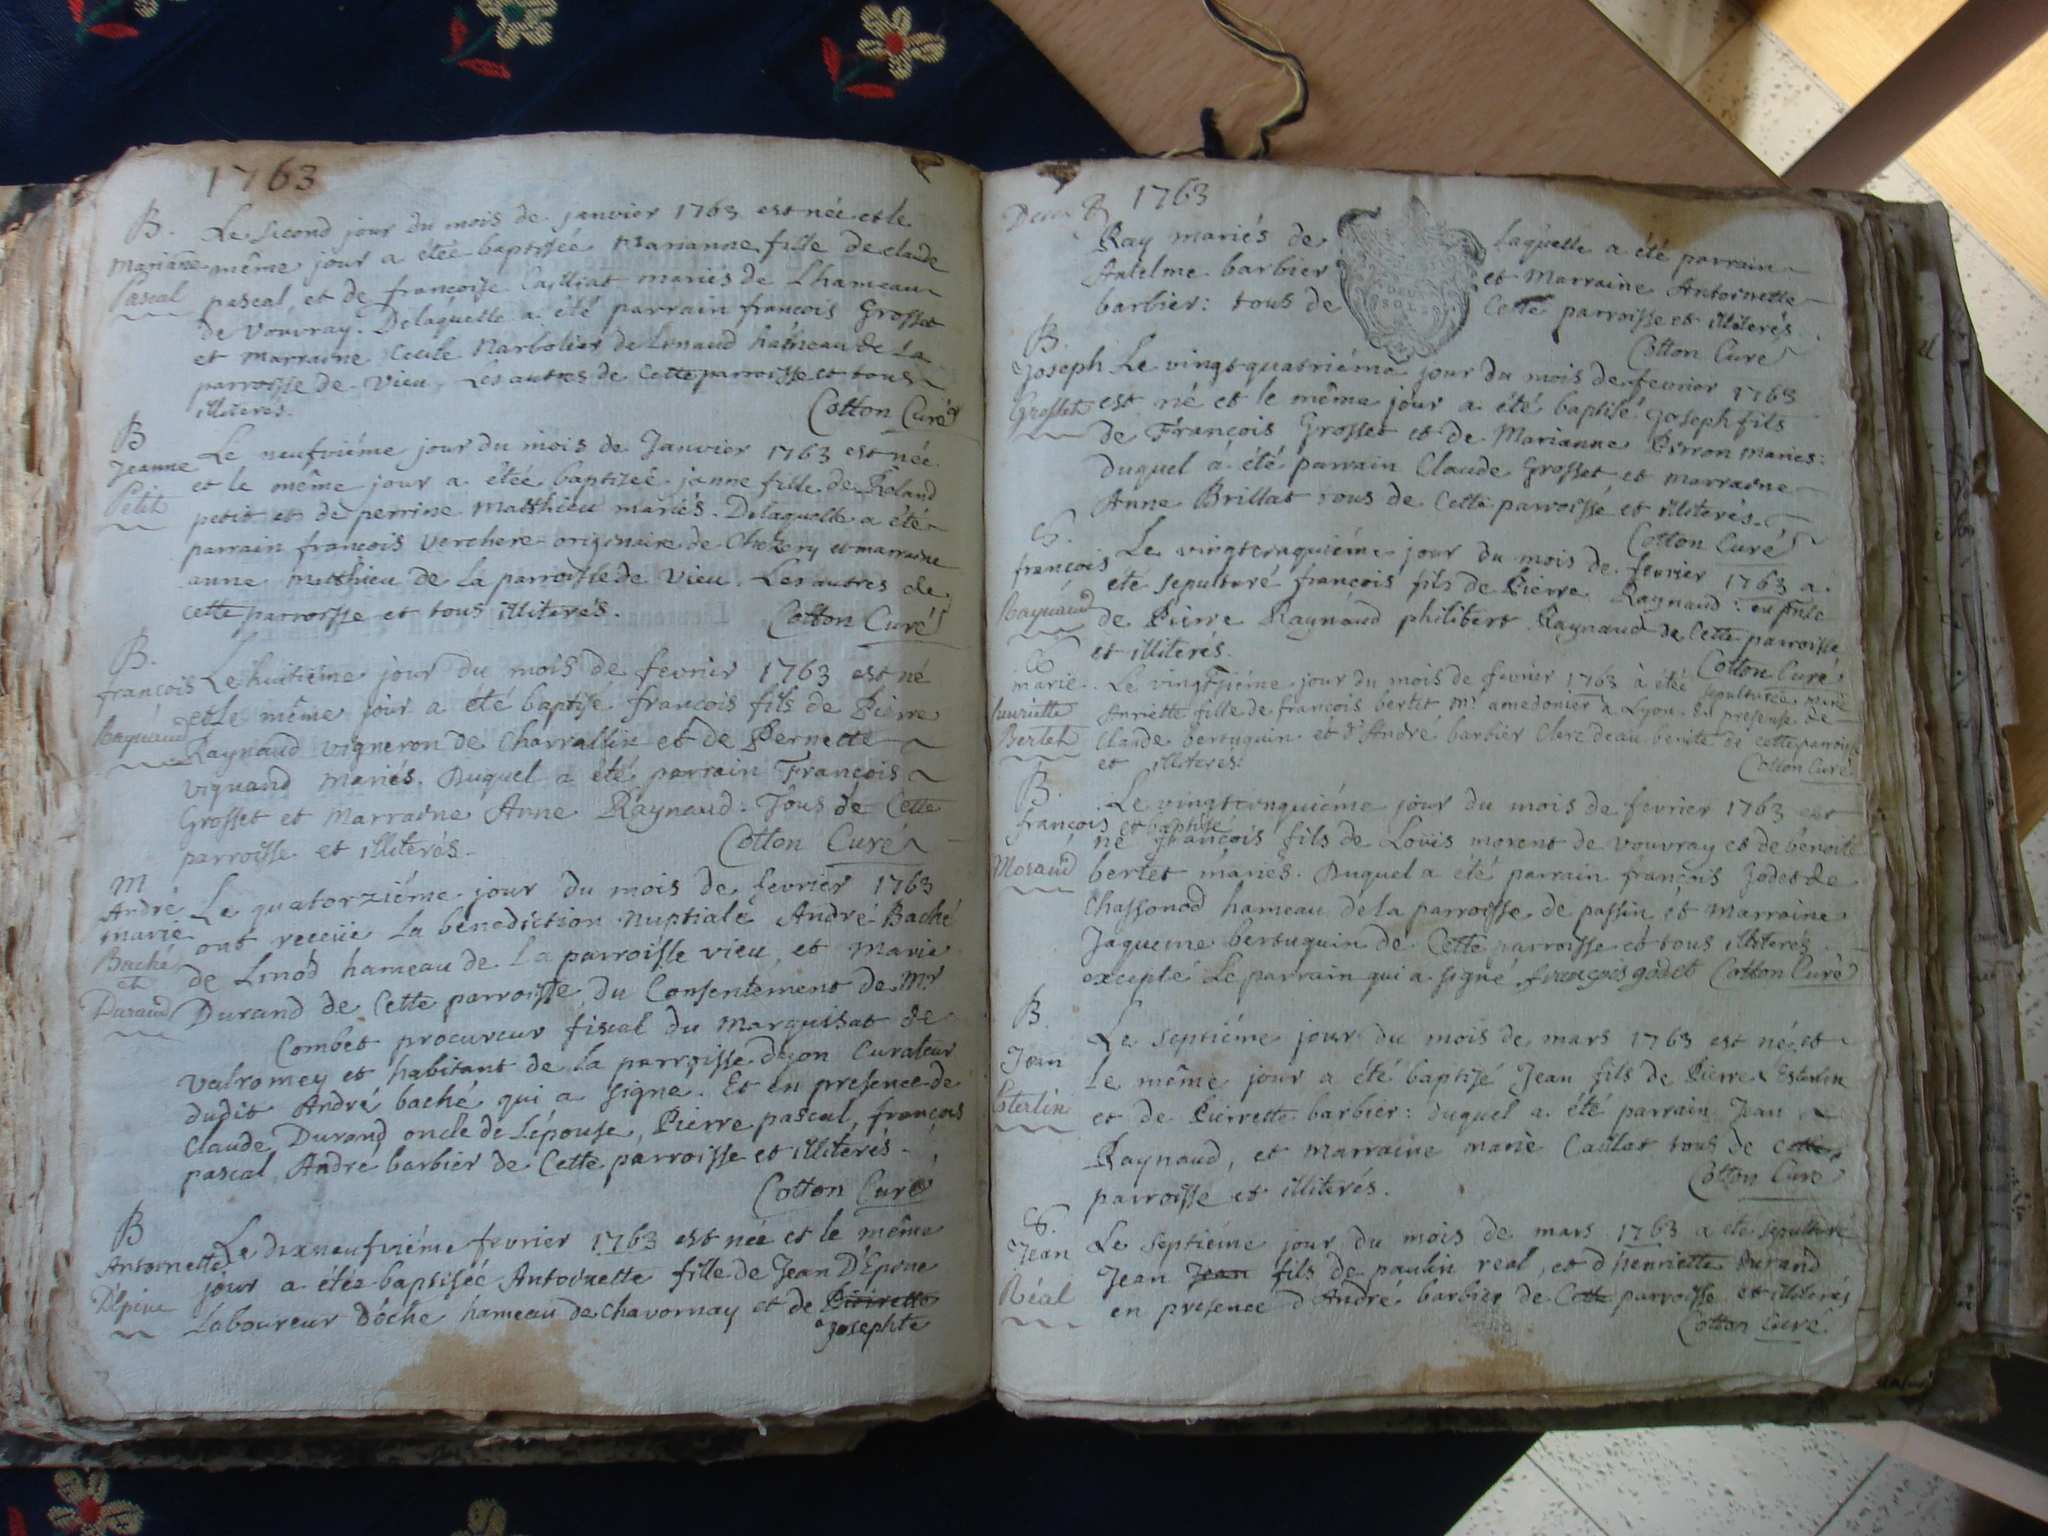 1763
B. Le second jour du mois de janvier 1763 est née et le
Marianne même jour a étée baptisée Marianne fille de claude
Pascal pascal, et de francoise Cailliat mariés de Lhameau
de Vouvray. Delaquelle a été parrain francois Grosset
et marraine Cecile Narbolier de Linaud hameau de La
parroisse de Vieu, Les autres de Cette parroisse et tous
illiterés. Cotton Curé
B Le neufviéme jour du mois de Janvier 1763 est née
Jeanne et le même jour a étée baptizée janne fille de Roland
Petit petit et de perrine Matthieu mariés. Delaquelle a été
parrain francois Verchere originaire de Chezery et marraine
anne Matthieu de La parroisse de Vieu. Les autres de
cette parroisse et tous illiterés. Cotton Curé
B.
françois Le huitiéme jour du mois de fevrir 1763 est né
et le même jour a été baptisé francois fils de Pierre
Raynaud Raynaud vigneron de Charraillin et de Pernette
viquand mariés. Duquel a été parrain François
Grosset et Marraine Anne Raynaud. Tous de Cette
parroisse et illiterés. Cotton Curé
M
André Le quatorziéme jour du mois de fevrier 1763
marie ont receüe La bénediction nuptiale André Baché
Baché de Linod hameau de La parroisse vieu, et Marie
et
Durand Durand de Cette parroisse, du Consentement de Mr
Combet procureur fiscal du Marquisat de
valromey et habitant de la parroisse dyon Curateur
dudit André baché qui a signe. Et en presence de
Claude Durand oncle de Lépouse, Pierre pascal, françois
pascal, André barbier de Cette parroisse et illiterés.
Cotton Curé
B
Antoinette Le dixneufviéme fevrier 1763 est née et le même
jour a étée baptisée Antoinette fille de Jean D'Epine
D'épine Laboureur Dóche hameau de Chavornay et de Pierrette
Josephte
1763
Ray mariés de Laquelle a été parrain
Antelme barbier et Marraine Antoinette
barbier: tous de Cette parroisse et illiterés
Cotton Curé
B.
Joseph Le vingt quatriéme jour du mois de fevrier 1763
Grosset est né et le même jour a été baptisé Joseph fils
de François Grosset et de Marianne Perron mariés:
duquel a été parrain Claude Grosset et marraine
Anne Brillat tous de Cette parroisse et illiterés.
Cotton Curé
S.
françois Le vingtcinquiéme jour du mois de fevrier 1763 a
été sepulturé françois fils de Pierre Raynaud: en pnse
Raynaud de Pierre Raynaud philibert Raynaud de Cette parroisse
et illiterés. Cotton Curé
S
marie Le vingt jour du mois de fevrier 1763 à étée sepulturée marie
henriette Anriette fille de françois bertet mr. amedonier a Lyon. En presense de
Bertet Claude bertuquin et d'André barbier Clerc deau benite de cette parroisse
et illiteres. Cotton Curé
B. Le vingtcinquiéme jour du mois de fevrier 1763 est
françois et baptisé
né françois fils de Loüis morent de vouvray et de benoite
Moraud bertet mariés. Duquel a été parrain françois Jodet de
Chassonod hameau de La parroisse de passin et Marraine
Jaqueme bertuquin de Cette parroisse et tous illiterés
excepté Le parrain qui a signé. françois godet Cotton Curé
B. Le septiéme jour du mois de mars 1763 est né, et
Jean Le même jour a été baptisé Jean fils de Pierre Esterlin
Esterlin et de Pierrette barbier: duquel a été parrain Jean
Raynaud, et marraine marie Caillat tous de Cette
parroisse et illiterés. Cotton Curé
S.
Jean Le septiéme jour du mois de mars 1763 a été sepulturé
Jean Jean fils de paulin real, et d'henriette Durand
Réal en presence d'André barbier de Cette parroisse et illiterés
Cotton Curé